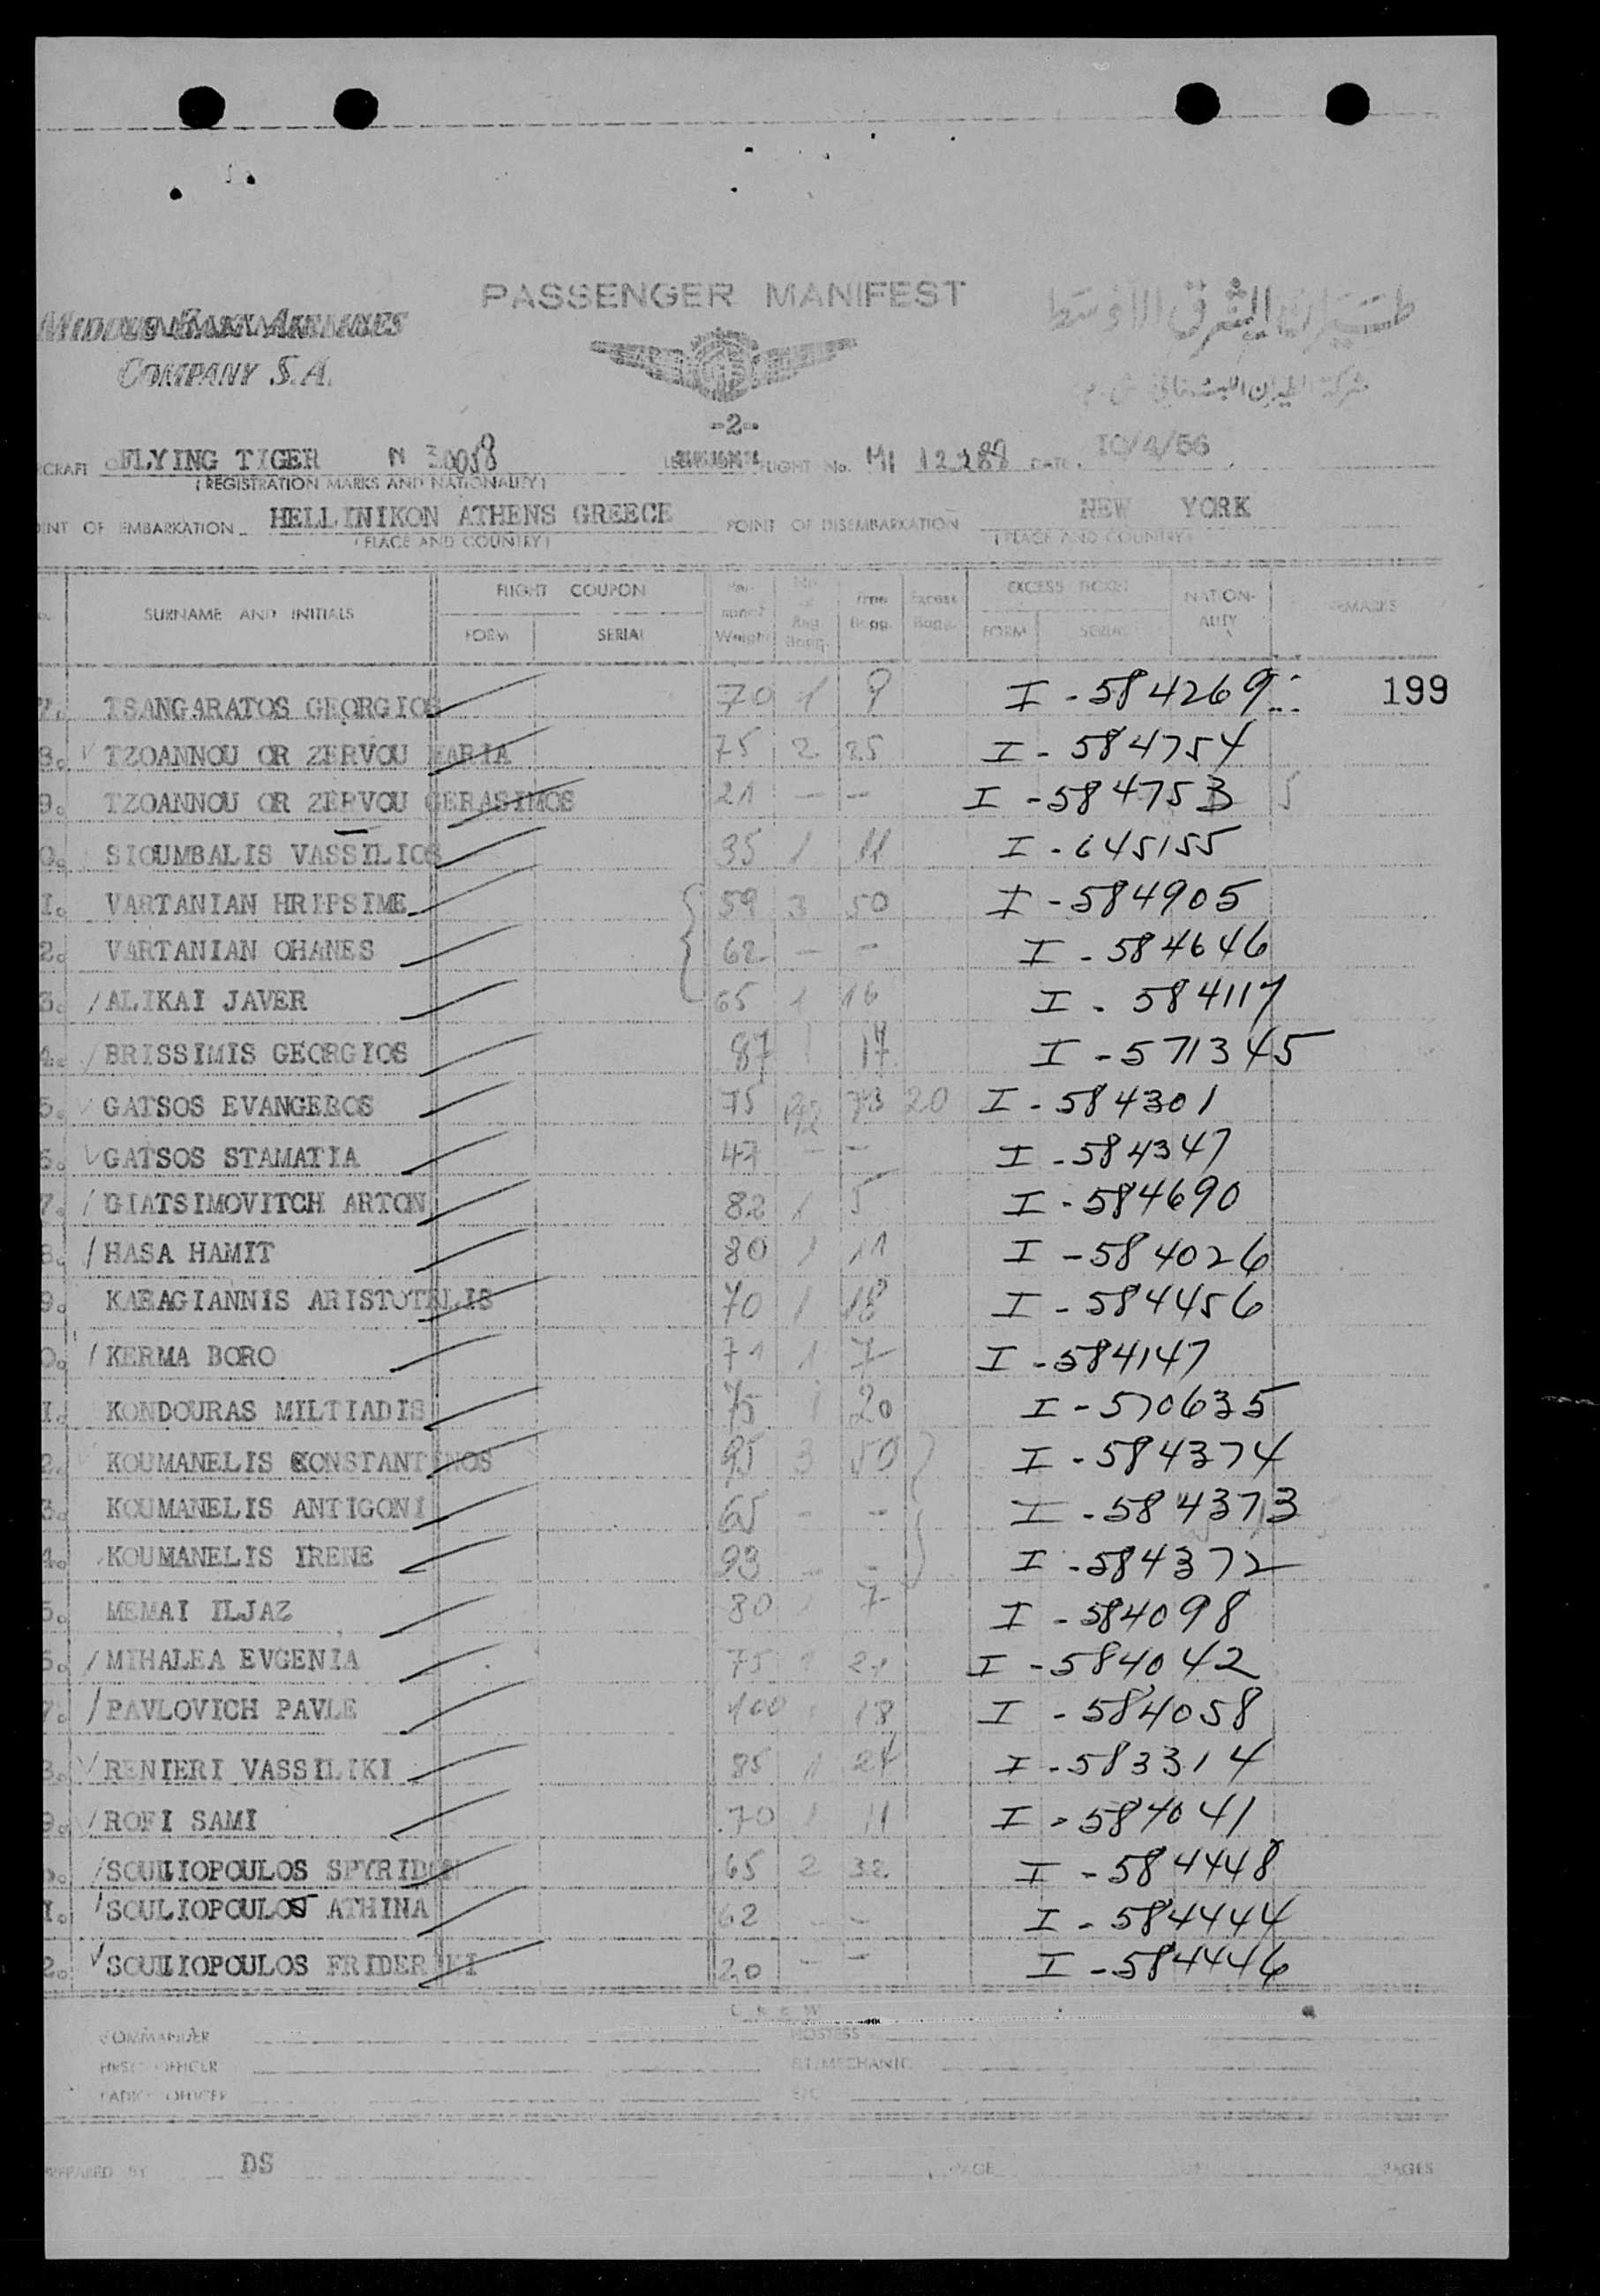 PASSENGER MANIFEST
MIDDLE EAST AIRLINES
COMPANY S.A.
طيران الشرق الاوسط
-2-
CRAFT FLYING TIGER N 30058 FLIGHT No. MI 12289 DATE 10/4/56
(REGISTRATION MARKS AND NATIONALITY)
INT OF EMBARKATION HELLINIKON ATHENS GREECE POINT OF DISEMBARKATION NEW YORK
(PLACE AND COUNTRY) (PLACE AND COUNTRY)
SURNAME AND INITIALS FLIGHT COUPON Weight Free Bagg. Excess Bagg. EXCESS TICKET NATION-ALITY REMARKS
FORM SERIAL FORM SERIAL
7. TSANGARATOS GEORGIOS 70 1 9 I - 584269 199
8. TZOANNOU OR ZERVOU MARIA 75 2 25 I - 584754
9. TZOANNOU OR ZERVOU GERASIMOS 21 - - I - 584753
0. SIOUMBALIS VASSILIOS 95 1 11 I - 645155
1. VARTANIAN HRIPSIME 59 3 50 I - 584905
2. VARTANIAN OHANES 62 - - I - 584646
3. ALIKAI JAVER 65 1 16 I - 584117
4. BRISSIMIS GEORGIOS 87 1 17 I - 571345
5. GATSOS EVANGEROS 75 20 I - 584301
6. GATSOS STAMATIA 47 - - I - 584347
7. GIATSIMOVITCH ARTON 82 1 5 I - 584690
8. HASA HAMIT 80 1 11 I - 584026
9. KARAGIANNIS ARISTOTELIS 70 1 18 I - 584456
0. KERMA BORO 71 1 7 I - 584147
1. KONDOURAS MILTIADIS 75 1 20 I - 570635
2. KOUMANELIS KONSTANTINOS 95 3 50 I - 584374
3. KOUMANELIS ANTIGONI 65 - - I - 584373
4. KOUMANELIS IRENE 93 - - I - 584372
5. MEMAI ILJAZ 80 7 I - 584098
6. MIHALEA EVGENIA 75 I - 584042
7. PAVLOVICH PAVLE 100 18 I - 584058
8. RENIERI VASSILIKI 85 1 24 I - 583314
9. ROFI SAMI 70 1 11 I - 584041
0. SOULIOPOULOS SPYRIDON 65 2 32 I - 584448
1. SOULIOPOULOS ATHINA 62 - - I - 584444
2. SOULIOPOULOS FRIDERIKI 20 - - I - 584446
CREW
COMMANDER HOSTESS
FIRST OFFICER FLT/MECHANIC
RADIO OFFICER
PREPARED BY DS PAGE PAGES